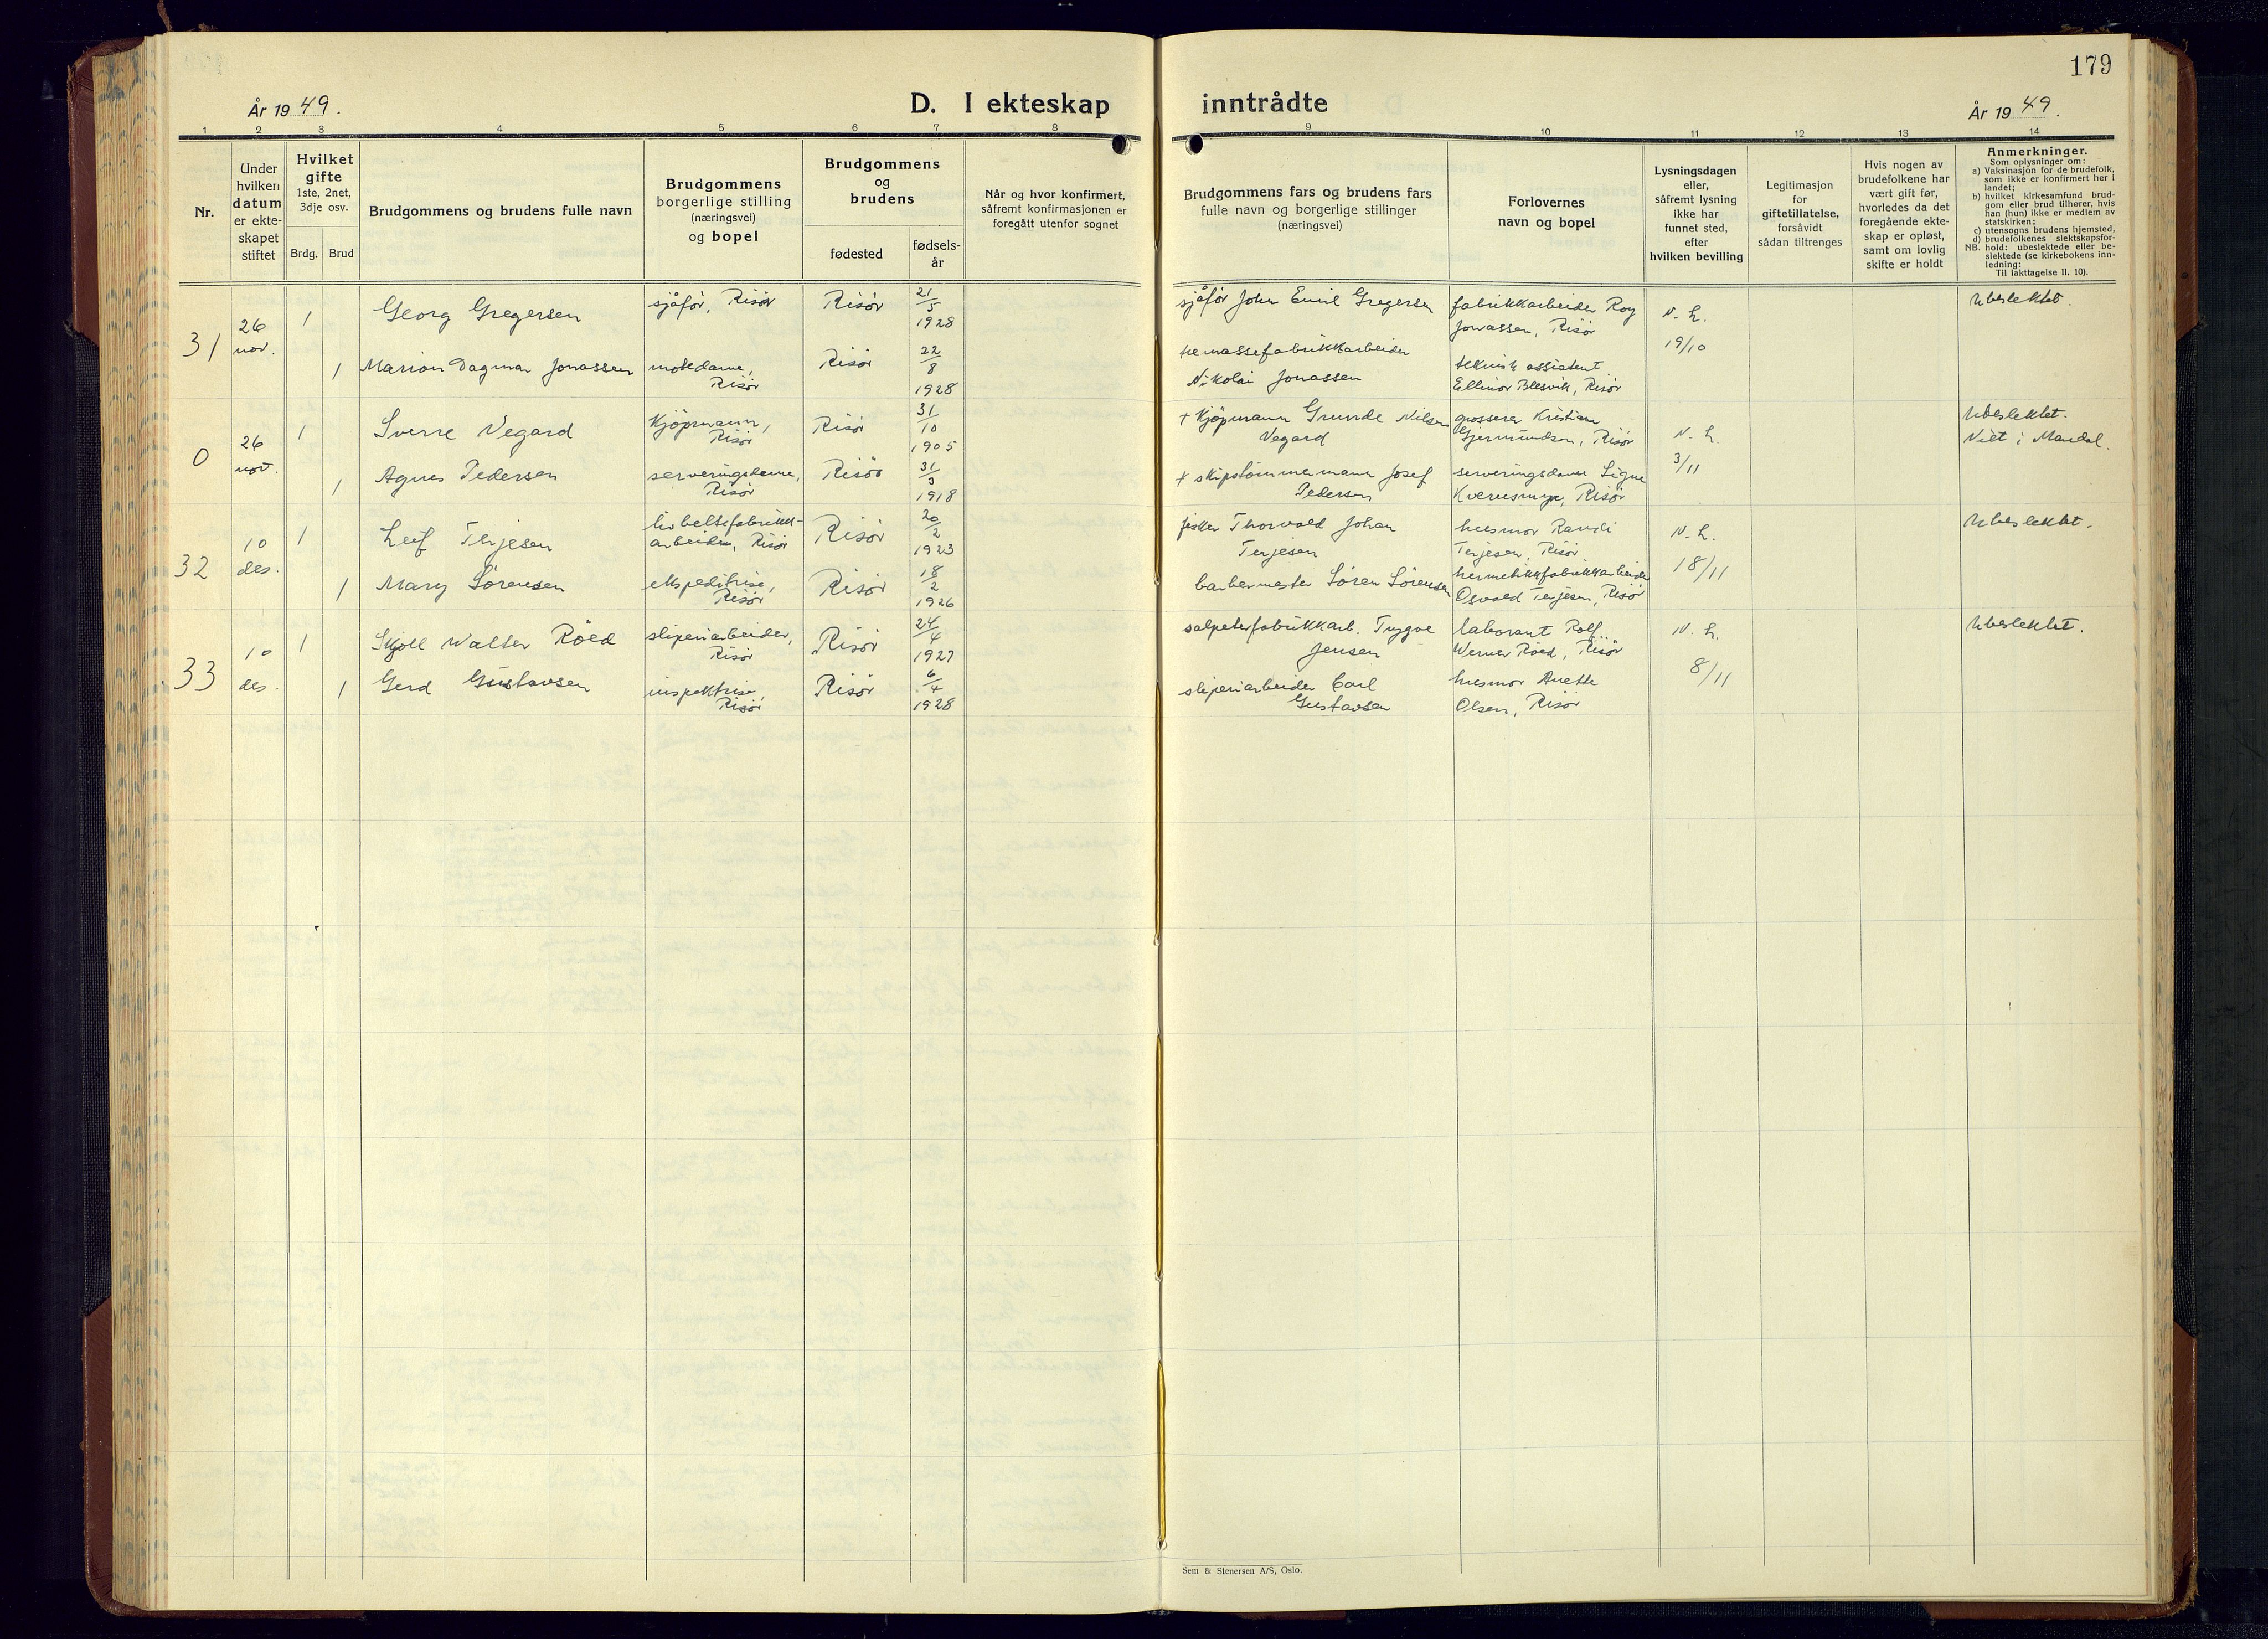 179
År 19 49.
D. I ekteskap
inntrådte
År 19 49.
1 2 3 4 5 6 7 8
9 10 11 12 13 14
Nr.
Under
hvilken
datum
er ekte-
skapet
stiftet
Hvilket
gifte
1ste, 2net,
3dje osv.
Brdg. Brud
Brudgommens og brudens fulle navn
Brudgommens
borgerlige stilling
(næringsvei)
og bopel
Brudgommens
og
brudens
fødested
fødsels-
år
Når og hvor konfirmert,
såfremt konfirmasjonen er
foregått utenfor sognet
Brudgommens fars og brudens fars
fulle navn og borgerlige stillinger
(næringsvei)
Forlovernes
navn og bopel
Lysningsdagen
eller,
såfremt lysning
ikke har
funnet sted,
efter
hvilken bevilling
Legitimasjon
for
giftetillatelse,
forsåvidt
sådan tiltrenges
Hvis nogen av
brudefolkene har
vært gift før,
hvorledes da det
foregående ekte-
skap er opløst,
samt om lovlig
skifte er holdt
Anmerkninger.
Som oplysninger om:
a) Vaksinasjon for de brudefolk,
som ikke er konfirmert her i
landet;
b) hvilket kirkesamfund brud-
gom eller brud tilhører, hvis
han (hun) ikke er medlem av
statskirken;
c) utensogns brudens hjemsted,
d) brudefolkenes slektskapsfor-
NB. hold: ubeslektede eller be-
slektede (se kirkebokens inn-
ledning:
Til iakttagelse II. 10).
31
26
nov.
1
Georg Gregersen
sjåfør, Risør
Risør
21/5
1928
sjåfør John Emil Gregersen
fabrikkarbeider Roy
Jonassen, Risør
N. L.
19/10
Ubeslektet.
1
Marion Dagmar Jonassen
motedame,
Risør
Risør
22/8
1928
tremassefabrikkarbeider
Nikolai Jonassen
teknisk assistent
Ellinor Blesvik, Risør
0
26
nov.
1
Sverre Vegard
Kjøpmann,
Risør
Risør
31/10
1905
+ Kjøpmann Grunde Nilsen
Vegard
grosserer Kristian
Gjermundsen, Risør
N. L.
3/11
Ubeslektet.
Viet i Mandal.
1
Agnes Pedersen
serveringsdame,
Risør
Risør
31/3
1918
+ skipstømmermann Josef
Pedersen
serveringsdame Signe
Kvernsmyr, Risør
32
10
des.
1
Leif Terjesen
livbeltefabrikk-
arbeider, Risør
Risør
20/2
1923
fisker Thorvald Johan
Terjesen
husmor Randi
Terjesen, Risør
N. L.
18/11
Ubeslektet.
1
Mary Sørensen
ekspeditrise,
Risør
Risør
18/2
1926
barbermester Søren Sørensen
hermetikkfabrikkarbeider
Osvald Terjesen, Risør
33
10
des.
1
Skjoll Walter Röed
sliperiarbeider,
Risør
Risør
24/4
1927
salpeterfabrikkarb. Trygve
Jensen
laborant Rolf
Werner Röed, Risør
N. L.
8/11
Ubeslektet.
1
Gerd Gustavsen
inspektrise,
Risør
Risør
6/4
1928
sliperiarbeider Carl
Gustavsen
husmor Anette
Olsen, Risør
Sem & Stenersen A/S, Oslo.